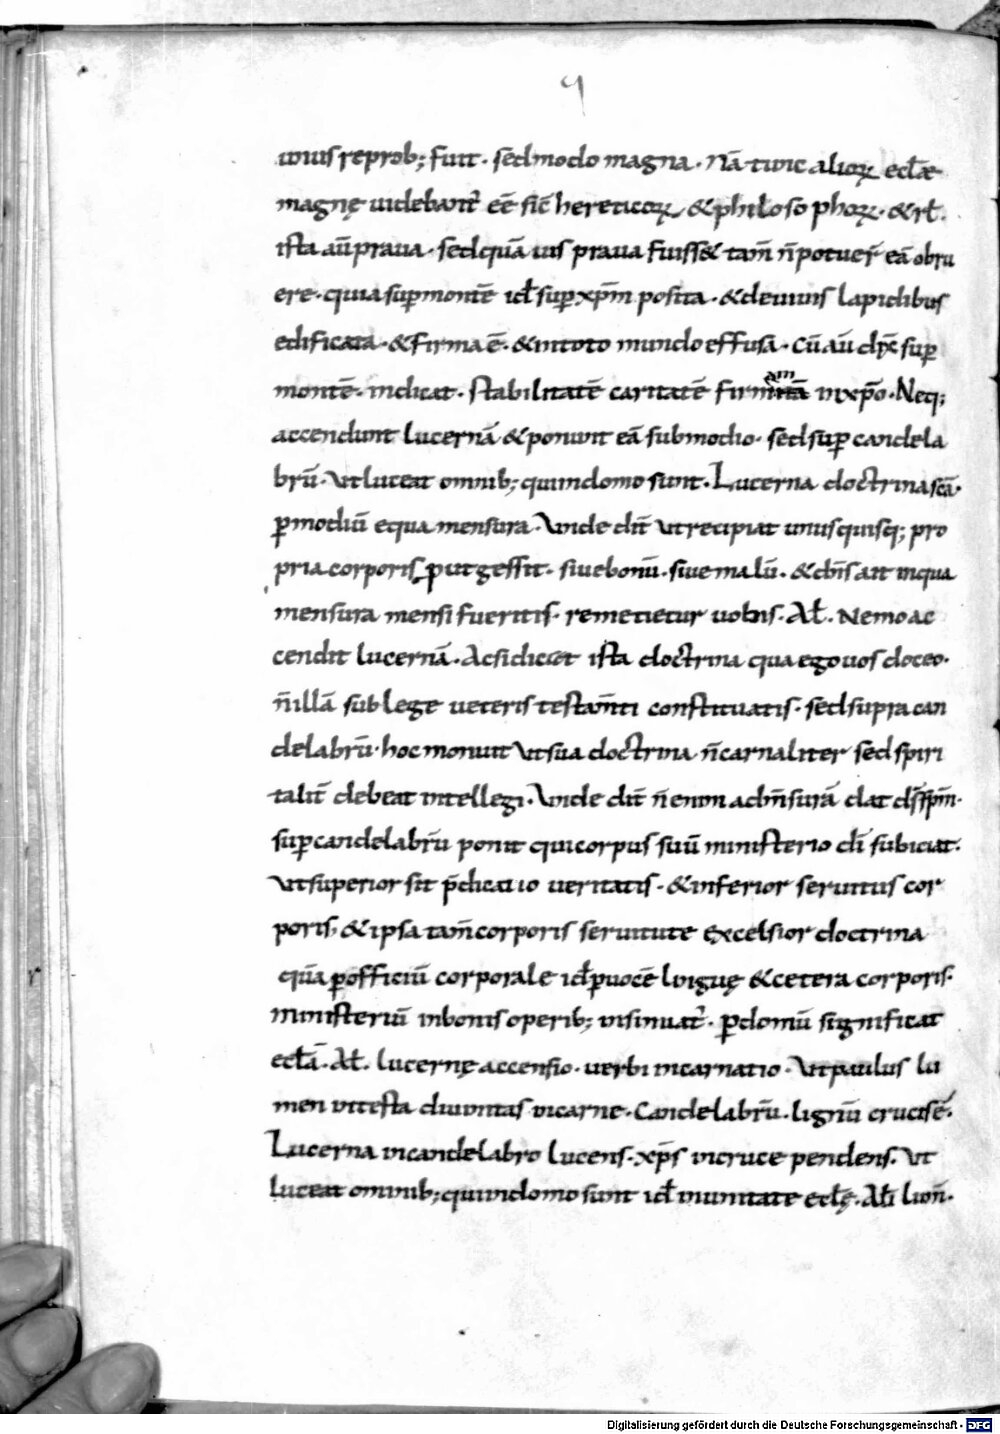 9
unius reprob; fuit · sed modo magna · nā tunc alioꝝ eclæ
magnę uidebant᷑ eē sic̄ hereticoꝝ, & philosophoꝝ · & rł.
ista aū praua · sed quā uis praua fuiss& tam̄ n̄ potuer̄ eā obru
ere · quia suꝑ montē idł suꝑ xp̄m posita · & de uiuis lapidibus
edificata · & firma ē · & in toto mundo effusa · Cū aū dx̄ suꝑ
montē · indicat · stabilitatē caritatē firmitā am in xp̄o · Neq;
accendunt lucernā & ponunt eā sub modio · sed suꝑ candela
brū · Ut luceat omnib; qui in domo sunt · Lucerna doctrina scā ·
ꝑ modiū equa mensura · Unde dic̄ ut recipiat unusquisq; pro
pria corporis put gessit · siue bonū · siue malū · & dn̄s ait in qua
mensura mensi fueritis · remetietur uobis · Ał · Nemo ac
cendit lucernā · Ac si dicat ista doctrina qua ego uos doceo ·
n̄ illā sub lege ueteris testam̄ti constituatis · sed supra can
delabrū · hoc monuit ut sua doctrina n̄ carnaliter sed spiri
talit̄ debeat intellegi · Unde dic̄ n̄ enim ad m̄surā dat ds̄ sp̄m ·
suꝑ candelabrū ponit qui corpus suū ministerio di subiciat ·
Ut superior sit p̄dicatio ueritatis · & inferior seruitus cor
poris; & ipsa tam̄ corporis seruitute excelsior doctrina
quā ꝑ officiū corporale idł ꝑ uocē linguę & cetera corporis ·
ministeriū in bonis operib; insinuat᷑ · ꝑ domū significat
ecłā · Ał. lucernę accensio · uerbi incarnatio · Ut paulus lu
men in testa diuinitas in carne · Candelabrū · lignū crucis ē ·
Lucerna in candelabro lucens · xp̄s in cruce pendens · Ut
luceat omnib; qui in domo sunt idł in unitate ecłę · Ał
Digitalisierung gefördert durch die Deutsche Forschungsgemeinschaft - DFG